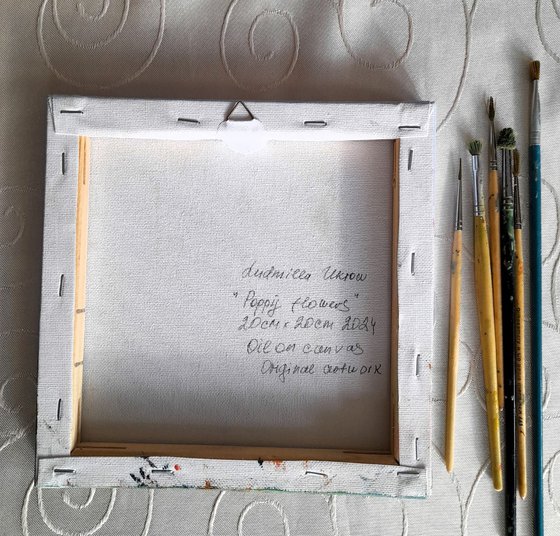 Ludmilla Ukrow
"Poppy flowers"
20cm x 20cm 2024
Oil on canvas
Original artwork